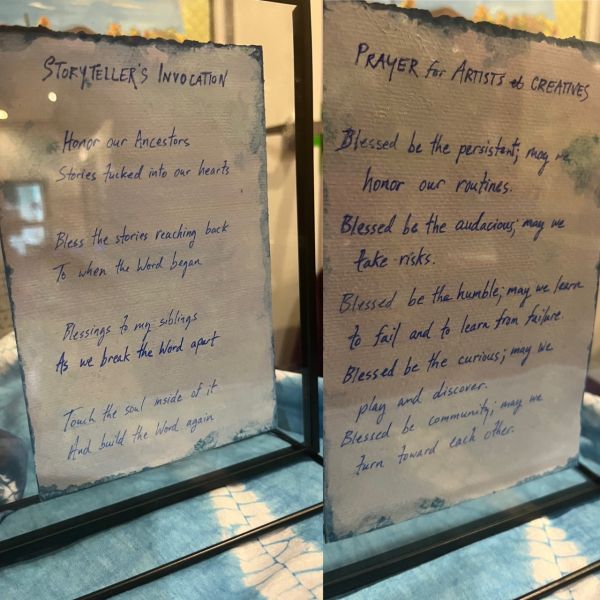 STORYTELLER'S INVOCATION
Honor our Ancestors
Stories tucked into our hearts
Bless the stories reaching back
To when the Word began
Blessings to my siblings
As we break the Word apart
Touch the soul inside of it
And build the Word again
PRAYER for ARTISTS & CREATIVES
Blessed be the persistent; may we
honor our routines.
Blessed be the audacious; may we
take risks.
Blessed be the humble; may we learn
to fail and to learn from failure.
Blessed be the curious; may we
play and discover.
Blessed be community; may we
turn toward each other.